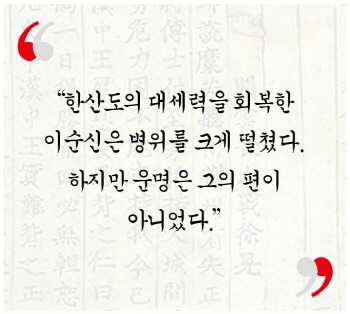 “한산도의 대세력을 회복한
이순신은 병위를 크게 떨쳤다.
하지만 운명은 그의 편이
아니었다.”